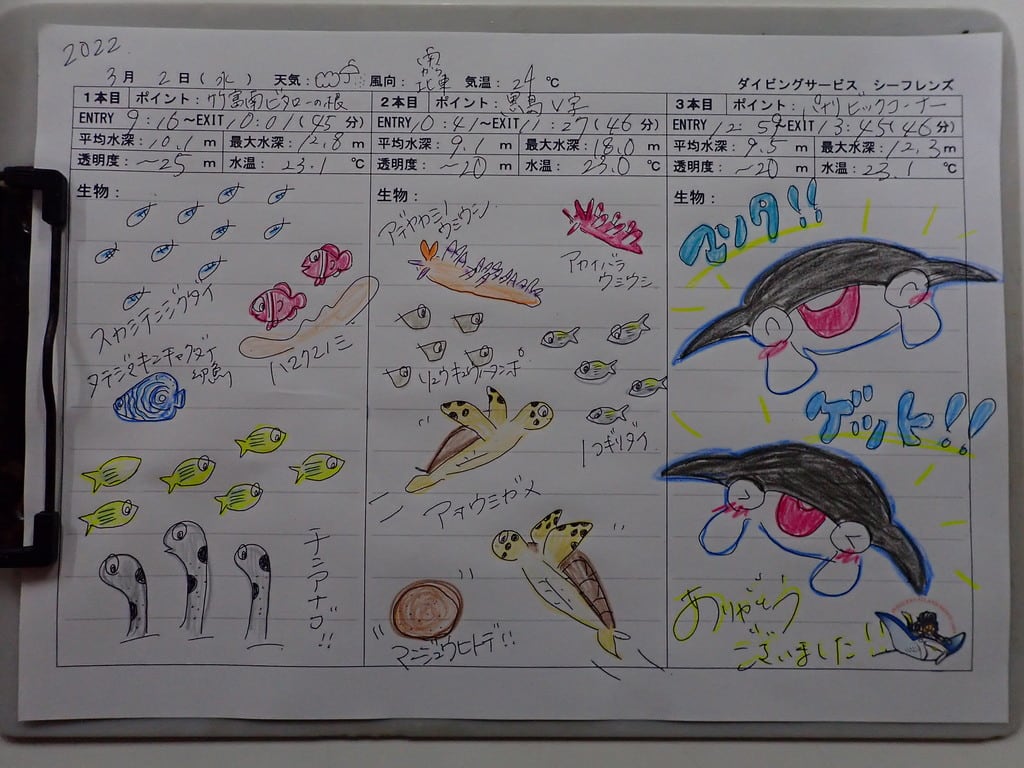 2022
3月 2日(水) 天気: 風向: 南から北東 気温: 24℃ ダイビングサービス シーフレンズ
1本目 ポイント: 竹富南ビタローの根
ENTRY 9:16~EXIT 10:01(45分)
平均水深: 10.1 m 最大水深: 12.8 m
透明度: ~25 m 水温: 23.1 ℃
生物:
スカシテンジクダイ
ハマクマノミ
タテジマキンチャクダイ
幼魚
チンアナゴ!!
2本目 ポイント: 黒島V字
ENTRY 10:41~EXIT 11:27(46分)
平均水深: 9.1 m 最大水深: 18.0 m
透明度: ~20 m 水温: 23.0 ℃
生物:
アデヤカミノ
ウミウシ
アカイバラ
ウミウシ
リュウキュウハタンポ
ノコギリダイ
アオウミガメ
マンジュウヒトデ!!
3本目 ポイント: パナリビックコーナー
ENTRY 12:59~EXIT 13:45(46分)
平均水深: 9.5 m 最大水深: 12.3 m
透明度: ~20 m 水温: 23.1 ℃
生物:
マンタ!!
ゲット!!
ありがとう
ございました!!